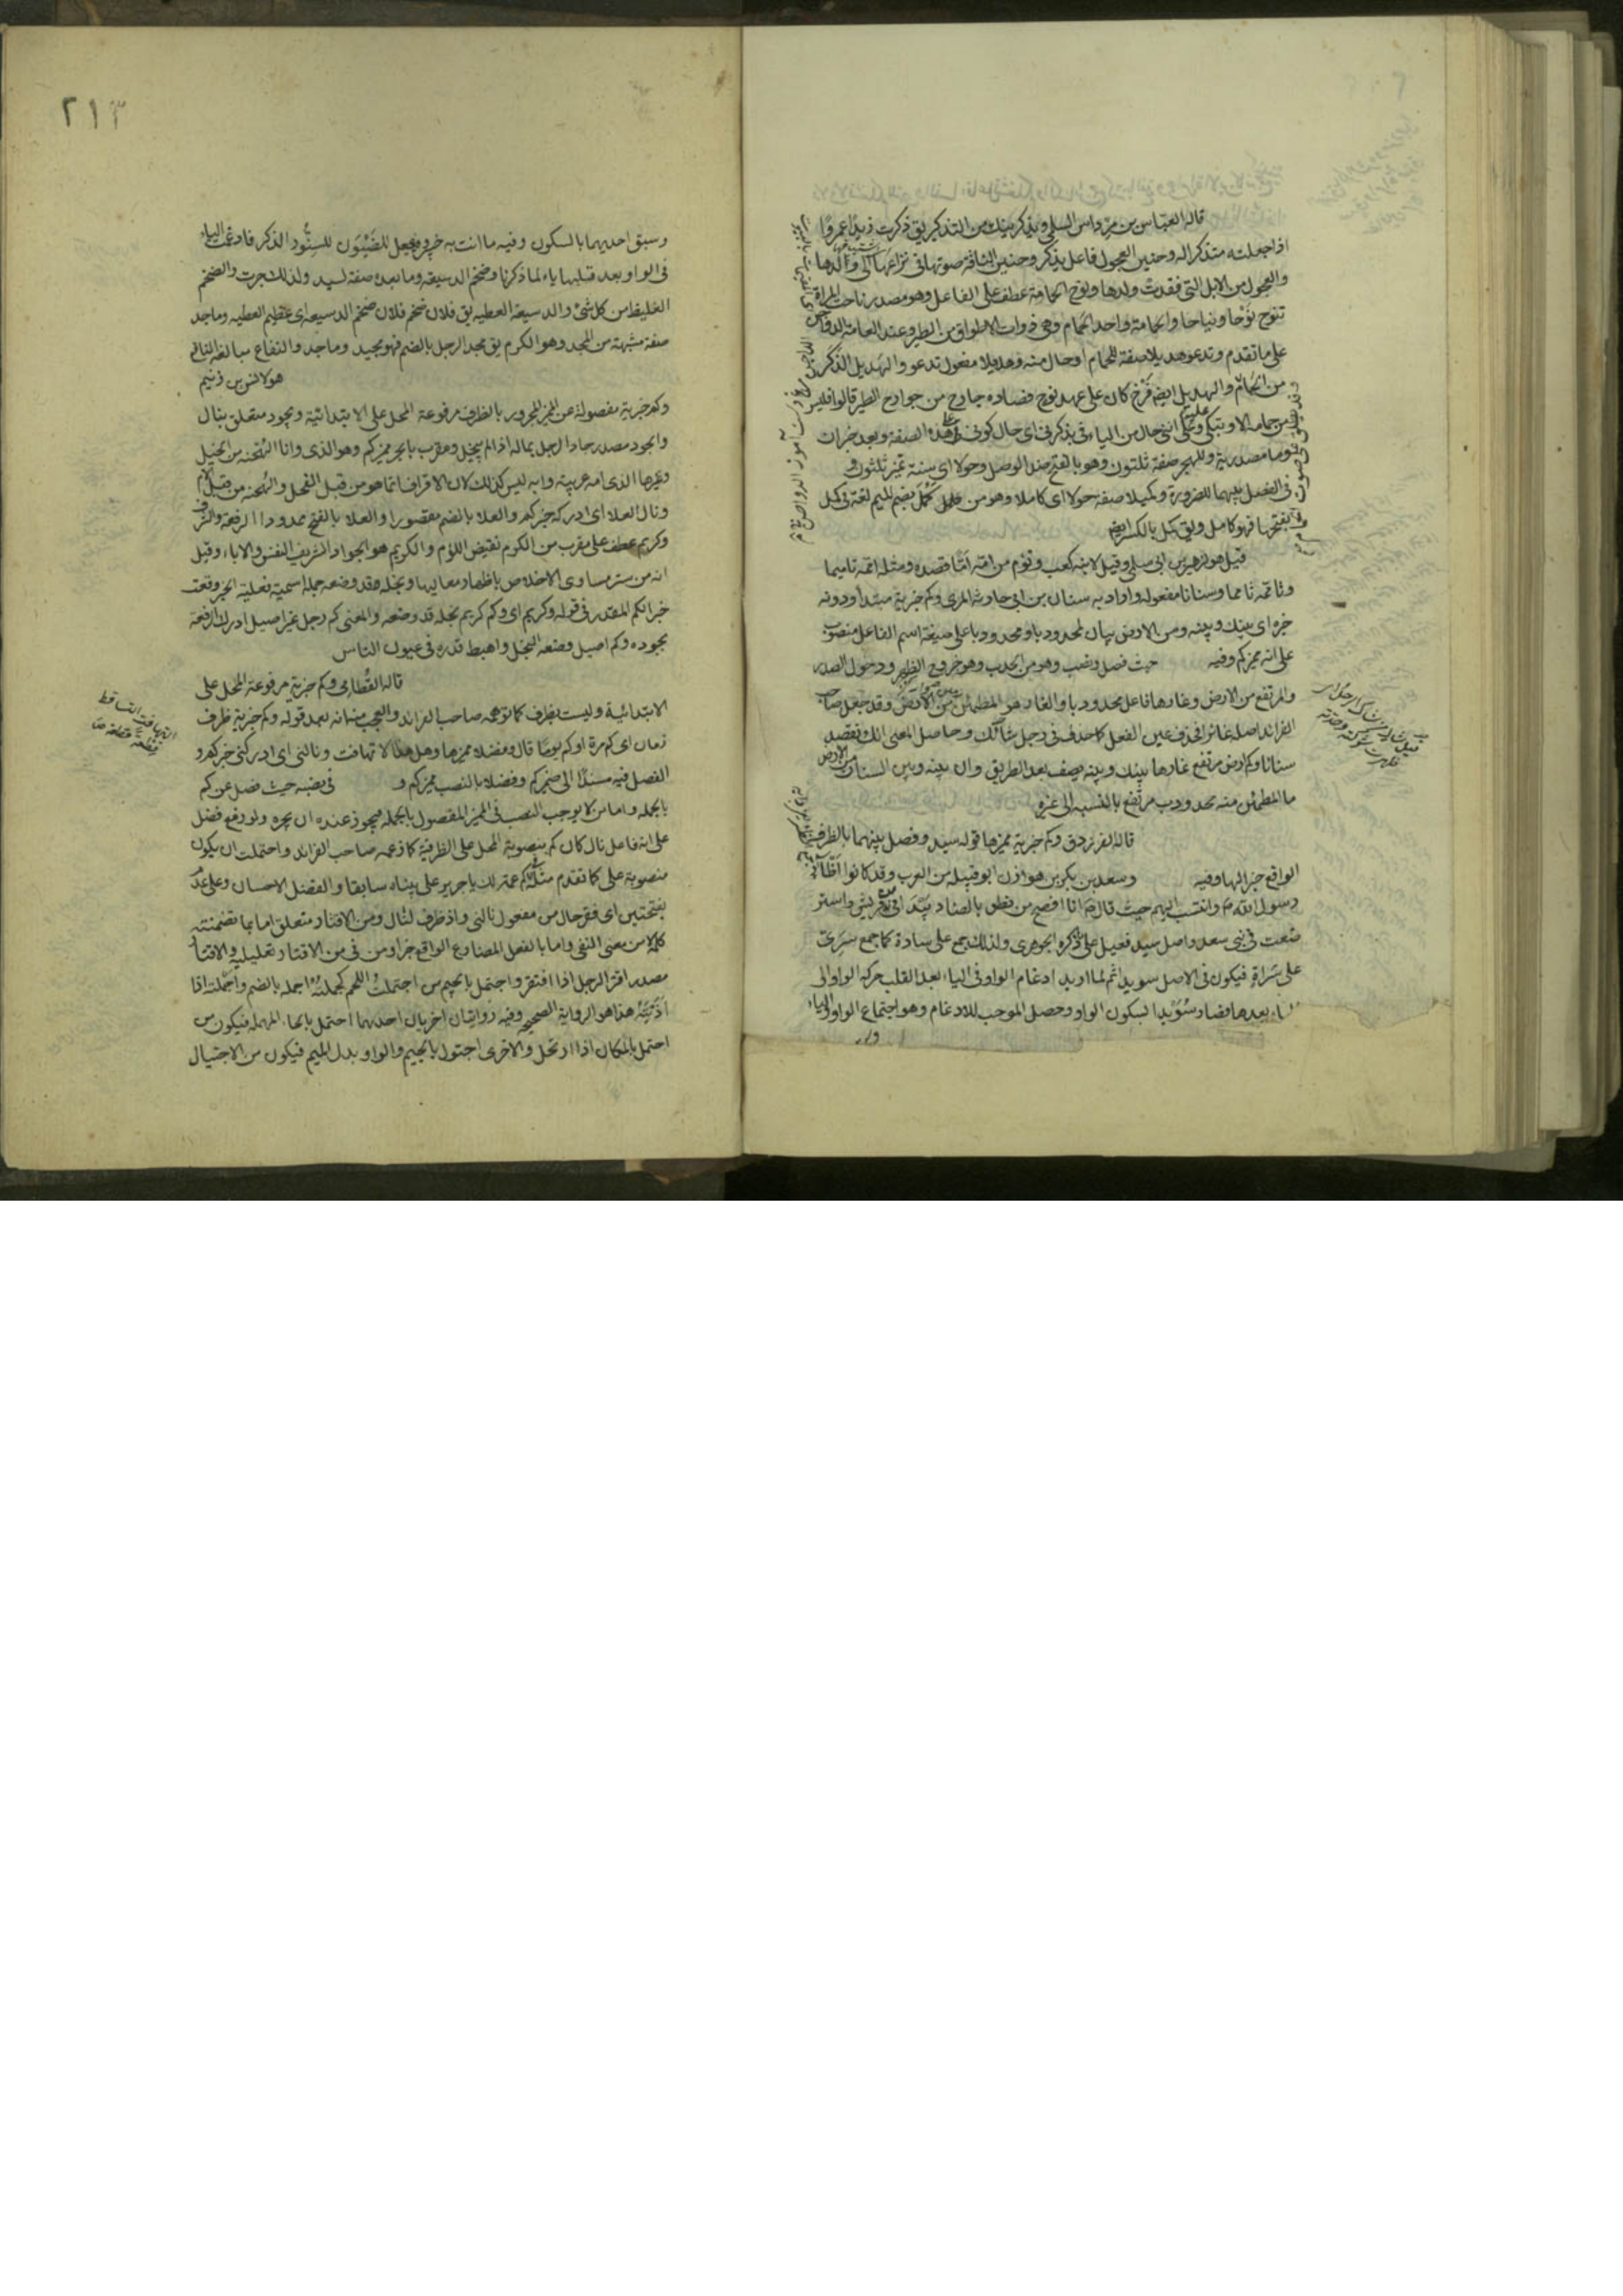 قاله العباس بن مرداس السلمي ويذكرنيك من التذكير يق ذكرت زيدا عمروا
اذا جعلته متذكرا له وحنين العجول فاعل يذكر وحنين الناقة صوتها في نزاعها الى ولدها
والعجول من الابل التي فقدت ولدها ونوح الحمامة عطف على الفاعل وهو مصدر ناحت المراة
تنوح نوحا ونياحا والحمامة واحد الحمام وهي ذوات الاطواق من الطير وعند العامة الدواجن
على ما تقدم وتدعو هديلا صفة للحمام او حال منه وهديلا مفعول تدعو والهديل الذكر
من الحمام والهديل ايضا فرخ كان على عهد نوح فصاده جارح من جوارح الطير قالوا فليس
من حمامة الا وتبكي عليه انني حال من الياء في يذكرني اي حال كوني على هذه الصفة وبعد خبران
وما مصدرية وللهجر صفة ثلثون وهو بالفتح ضد الوصل وحولا اي سنة تميز ثلثون و
في الفصل بينهما للضرورة وكميلا صفة حولا اي كاملا وهو من كمل بضم الميم لغة في كمل
بفتحها فهو كامل ويق كمل بالكسر ايضا
قيل هو لزهير بن ابي سلمى وقيل لابنه كعب وتؤم من امه اما قصده ومثله اممه تاميما
وتاممه تامما وسنانا مفعوله واراد به سنان بن ابي حارثة المري وكم خبرية مبتدا ودونه
خبره اي بينك وبينه ومن الارض بيان لمحدودبا ومحدودبا على صيغة اسم الفاعل منصوب
على انه مميز كم وفيه حيث فصل ونصب وهو من الحدب وهو خروج الظهر ودخول الصدر
والمرتفع من الارض وغارها فاعل محدودبا والغار هو المطمئن من الارض وقد جعل صاحب
الفرائد اصله غائر الحذف عين الفعل كما حذف في رجل شاك وحاصل المعنى انك تقصد
سنانا وكم ارض مرتفع غارها بينك وبينه يصف بعد الطريق وان بينه وبين السنان من الارض
ما المطمئن منه محدودب مرتفع بالنسبة الى غيره
قاله الفرزدق وكم خبرية مميزها قوله سيد وفصل بينهما بالظرف
الواقع خبرا لها وفيه وسعد بن بكر بن هوازن ابو قبيلة من العرب وقد كانوا اظآر
رسول الله ص وانتسب اليهم حيث قال ص انا افصح من نطق بالضاد بيد اني من قريش واستر
ضعت في بني سعد واصل سيد فعيل على ما ذكره الجوهري ولذلك جمع على سادة كما جمع سري
على سراة فيكون في الاصل سويدا ثم لما اريد ادغام الواو في الياء بعد القلب حركة الواو الى
الياء بعدها فصار سويدا لسكون الواو وحصل الموجب للادغام وهو اجتماع الواو والياء
٢١٣
وسبق احديهما بالسكون وفيه ما انت به خبير ويجعل للضيون للسنور الذكر فادغمت الياء
في الواو بعد قلبها ياء لما ذكرنا وضخم الدسيعة وما بعده صفة لسيد ولذلك جرت والضخم
الغليظ من كل شئ والدسيعة العطية يق فلان ضخم فلان ضخم الدسيعة اي عظيم العطية وماجد
صفة مشبهة من المجد وهو الكرم يق مجد الرجل بالضم فهو مجيد وماجد والنفاع مبالغة النافع
هو لانس بن زنيم
وكم خبرية مفصولة عن المميز المجرور بالظرف مرفوعة المحل على الابتدائية وبجود متعلق بنال
والجود مصدر جاد الرجل بماله اذا لم يبخل ومقرف بالجر مميز كم وهو الذي دانا الهجنة من الخيل
وغيرها الذي امه عربية وابوه ليس كذلك لان الاقراف انما هو من قبل الفحل والهجنة من قبل الام
ونال العلا اي ادركه خبر كم والعلا بالضم مقصورا والعلا بالفتح ممدودا الرفعة والشرف
وكريم عطف على مقرف من الكرم نقيض اللؤم والكريم هو الجواد الشريف النفس والاباء وقيل
انه من ستر مساوي الاخلاص باظهار معاليها وبخله وقد وضعه جملة اسمية فعلية الخبر وقعت
خبرا لكم المقدر في قوله وكريم اي وكم كريم بخله قد وضعه والمعنى كم رجل غير اصيل ادرك الرفعة
بجوده وكم اصيل وضعه البخل واهبط قدره في عيون الناس
قاله القطامي وكم خبرية مرفوعة المحل على
الابتدائية وليست بظرف كما توهمه صاحب الفرائد والعجب منه انه بعد قوله وكم خبرية ظرف
زمان اي كم مرة او كم يوما قال وفضلا مميزها وهل هذا الا تهافت ونالني اي ادركني خبر كم و
الفصل فيه مسندا الى ضمير كم وفضلا بالنصب مميز كم و في نصبه حيث فصل عن كم
بالجملة واما من لا يوجب النصب في المميز المفصول بالجملة فيجوز عنده ان يجره ولو رفع فضل
على انه فاعل نال كان كم منصوبة المحل على الظرفية كما زعمه صاحب الفرائد واحتملت ان يكون
منصوبة على كما تقدم مثله في كم عمة لك يا جرير على بيناه سابقا والفضل الاحسان وعلى عدم
بفتحتين اي فقر حال من مفعول نالني واذ ظرف لنال ومن الاقتار متعلق اما بما تضمنته
كلمة لا من معنى النفي واما بالفعل المضارع الواقع جزاء ومن في من الاقتار تعليلية والاقتار
مصدر اقتر الرجل اذا افتقر واجتمل بالجيم من اجتملت اللحم كجملته اجمله بالضم واجملته اذا
اذبته هذا هو الرواية الصحيحة وفيه روايتان اخريان احديهما احتمل بالحاء المهملة فيكون من
احتمل بالمكان اذا ارتحل والاخرى اجتول بالجيم والواو بدل الميم فيكون من الاجتيال
التهافت التساقط
قطعة قطعة ص